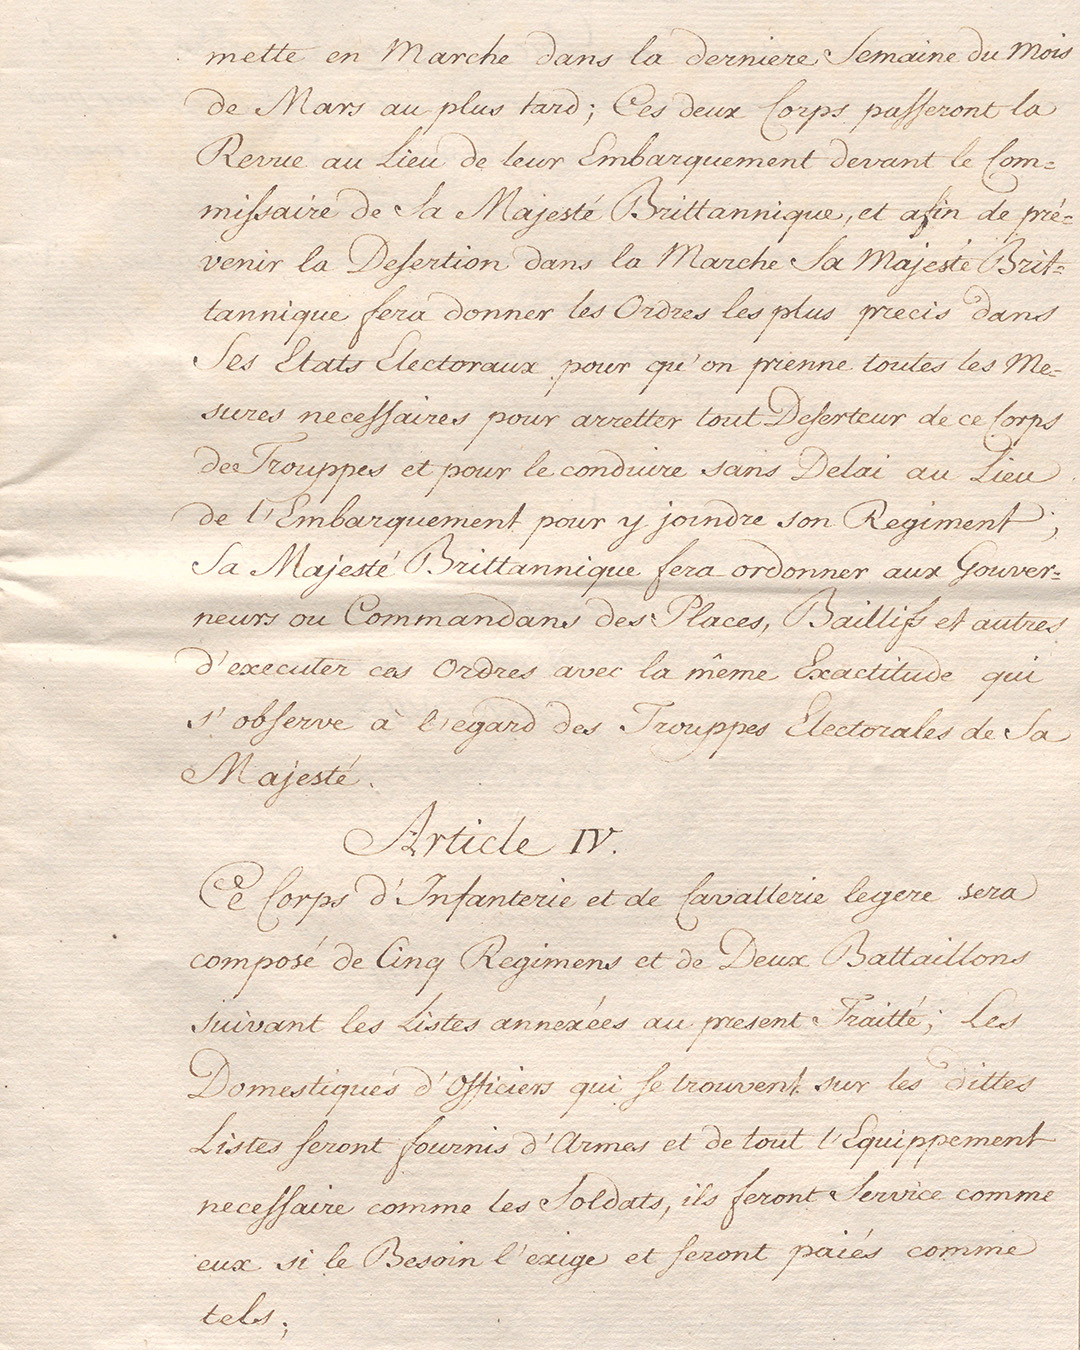 mette en Marche dans la derniere Semaine du Mois
de Mars au plus tard; Ces deux Corps passeront la
Revue au Lieu de leur Embarquement devant le Com=
missaire de Sa Majesté Brittannique, et afin de pré=
venir la Desertion dans la Marche Sa Majesté Brit=
tannique fera donner les Ordres les plus precis dans
Ses Etats Electoraux pour qu'on prenne toutes les Me=
sures necessaires pour arretter tout Deserteur de ce Corps
de Trouppes et pour le conduire sans Delai au Lieu
de l'Embarquement pour y joindre son Regiment;
Sa Majesté Brittannique fera ordonner aux Gouver=
neurs ou Commandans des Places, Baillifs et autres
d'executer ces Ordres avec la même Exactitude qui
s'observe à l'egard des Trouppes Electorales de Sa
Majesté.
Article IV.
Ce Corps d'Infanterie et de Cavallerie legere sera
composé de Cinq Regimens et de Deux Battaillons
suivant les Listes annexées au present Traitté; Les
Domestiques d'Officiers qui se trouvent sur les dittes
Listes seront fournis d'Armes et de tout l'Equippement
necessaire comme les Soldats, ils feront Service comme
eux si le Besoin l'exige et seront paiés comme
tels;